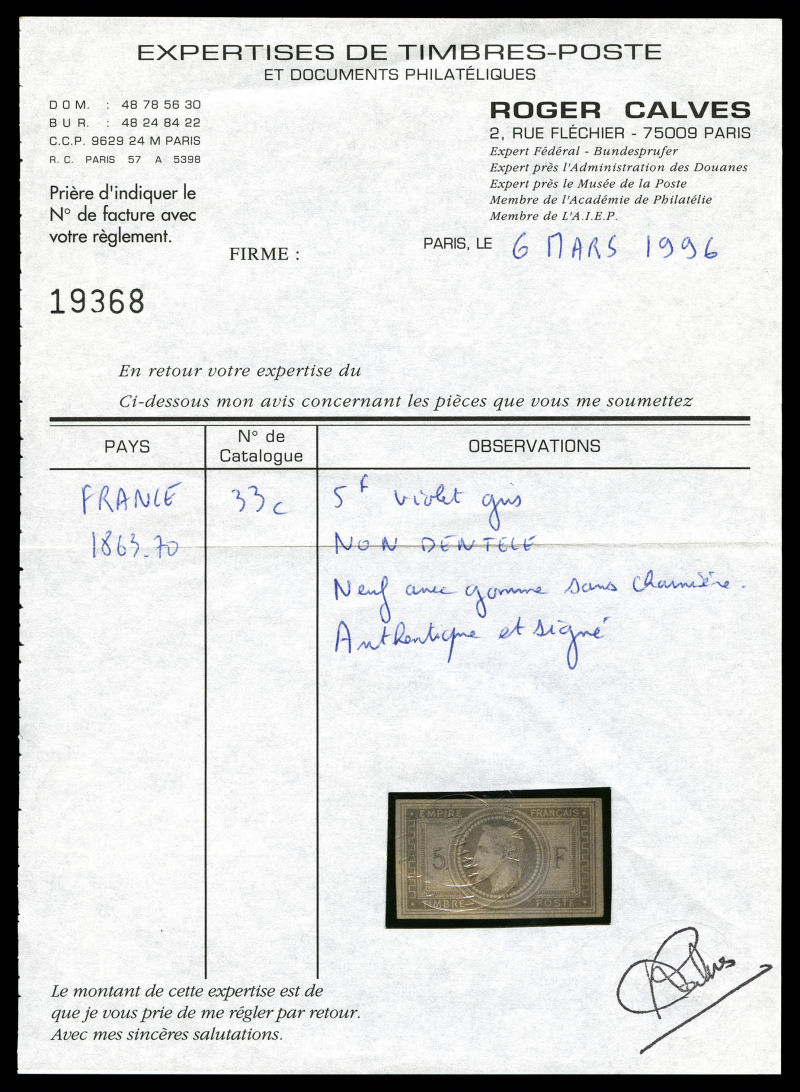 EXPERTISES DE TIMBRES-POSTE
ET DOCUMENTS PHILATÉLIQUES
DOM. : 48 78 56 30
BUR. : 48 24 84 22
C.C.P. 9629 24 M PARIS
R. C. PARIS 57 A 5398
Prière d'indiquer le
N° de facture avec
votre règlement.
ROGER CALVES
2, RUE FLÉCHIER - 75009 PARIS
Expert Fédéral - Bundesprufer
Expert près l'Administration des Douanes
Expert près le Musée de la Poste
Membre de l'Académie de Philatélie
Membre de L'A.I.E.P.
FIRME :
PARIS, LE 6 MARS 1996
19368
En retour votre expertise du
Ci-dessous mon avis concernant les pièces que vous me soumettez
PAYS
N° de
Catalogue
OBSERVATIONS
FRANCE 33c 5f violet gris
1863.70 NON DENTELE
Neuf avec gomme sans charnière.
Authentique et signé
EMPIRE FRANÇAIS
5 F
TIMBRE POSTE
Le montant de cette expertise est de
que je vous prie de me régler par retour.
Avec mes sincères salutations.
Calves